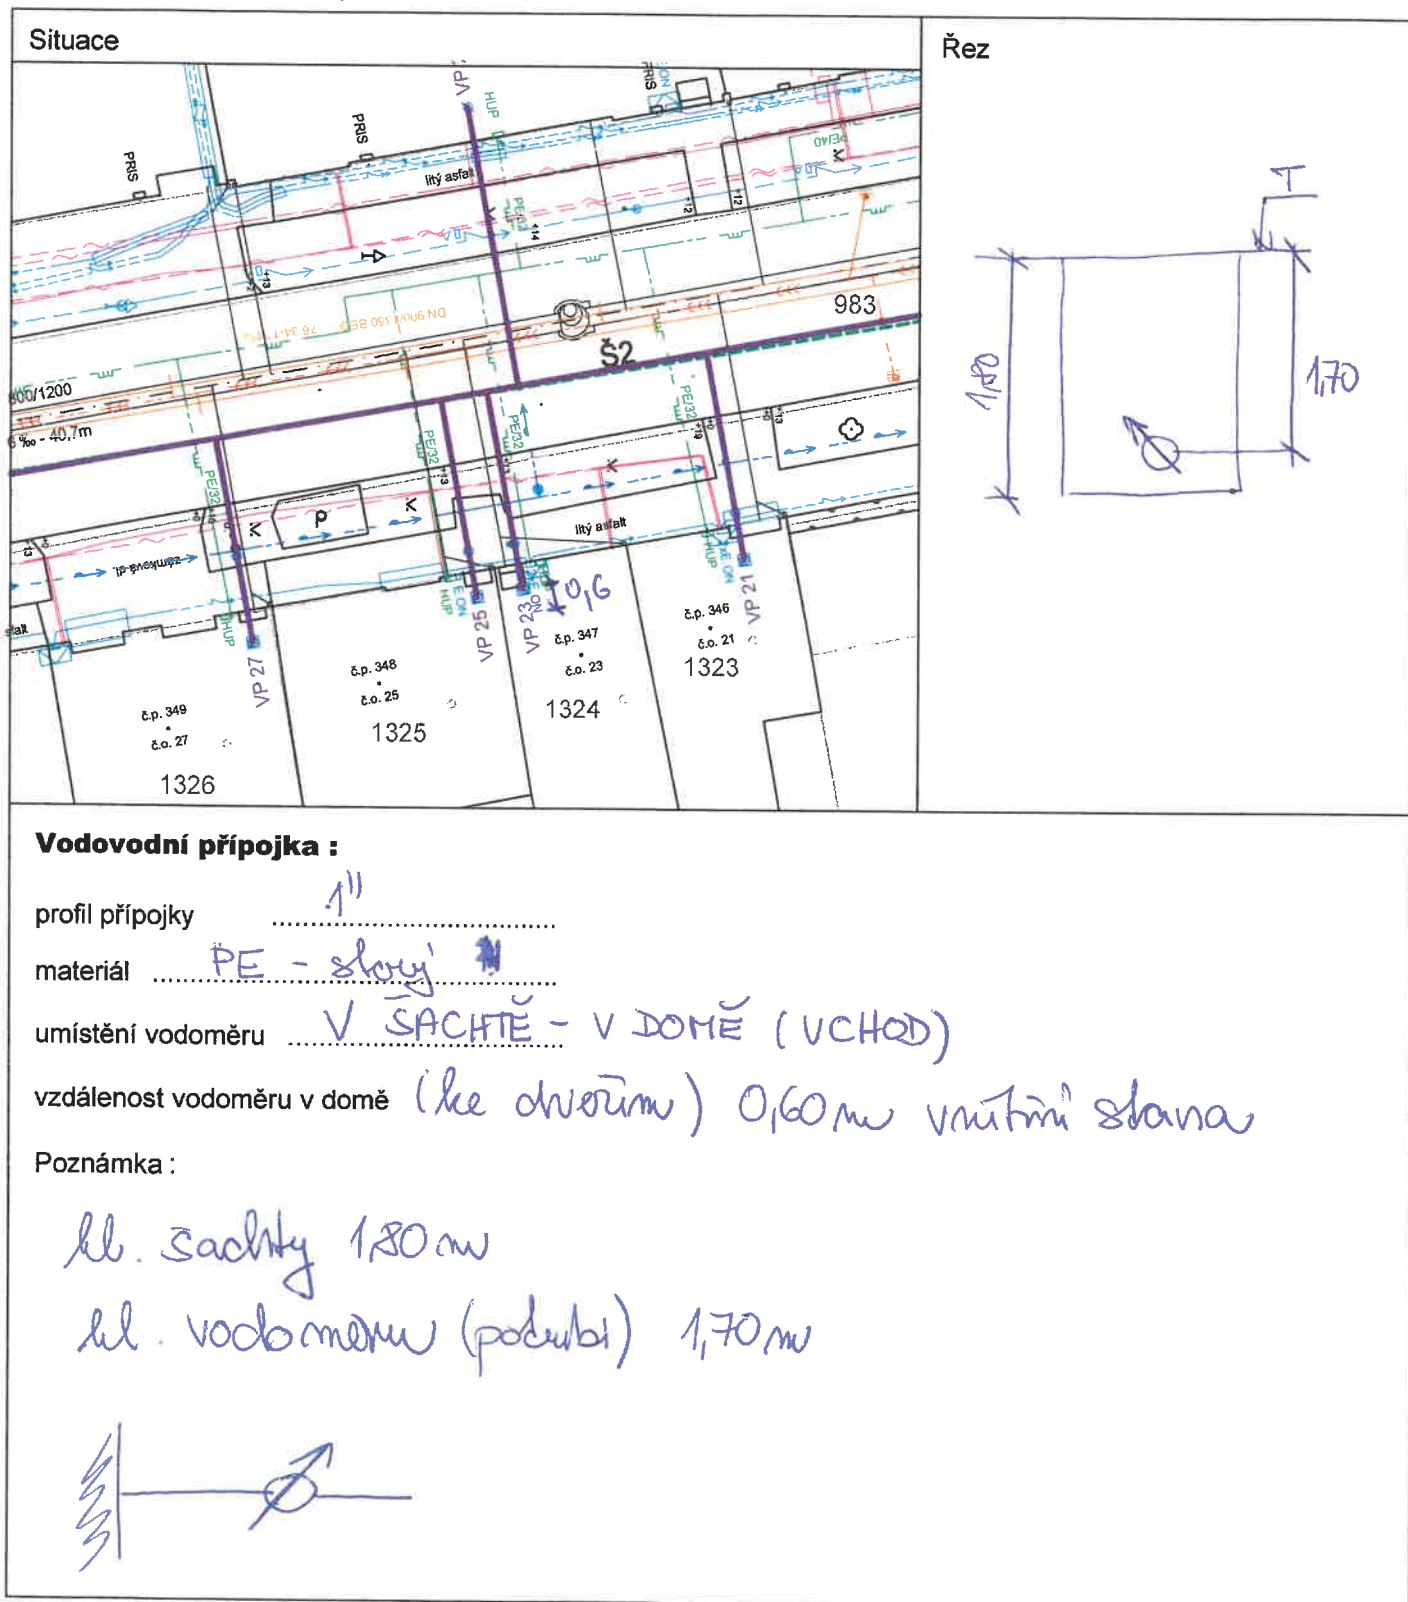 Situace
Řez
PRIS
PRIS
PRIS
VP
HUP
litý asfalt
PE/63
PE/40
+12
+12
+14
+13
983
Š2
800/1200
6 ‰ - 40,7m
PE/32
PE/32
PE/32
PE/32
+13
+19
+13
litý asfalt
zámková dl.
HUP
HUP
HUP
VP 27
VP 25
VP 23
VP 21
0,6
č.p. 349
č.o. 27
1326
č.p. 348
č.o. 25
1325
č.p. 347
č.o. 23
1324
č.p. 346
č.o. 21
1323
T
1,80
1,70
Vodovodní přípojka :
profil přípojky 1"
materiál PE - starý
umístění vodoměru V ŠACHTĚ - V DOMĚ (VCHOD)
vzdálenost vodoměru v domě (ke dveřím) 0,60 m vnitřní strana
Poznámka :
hl. šachty 1,80 m
hl. vodoměru (potrubí) 1,70 m